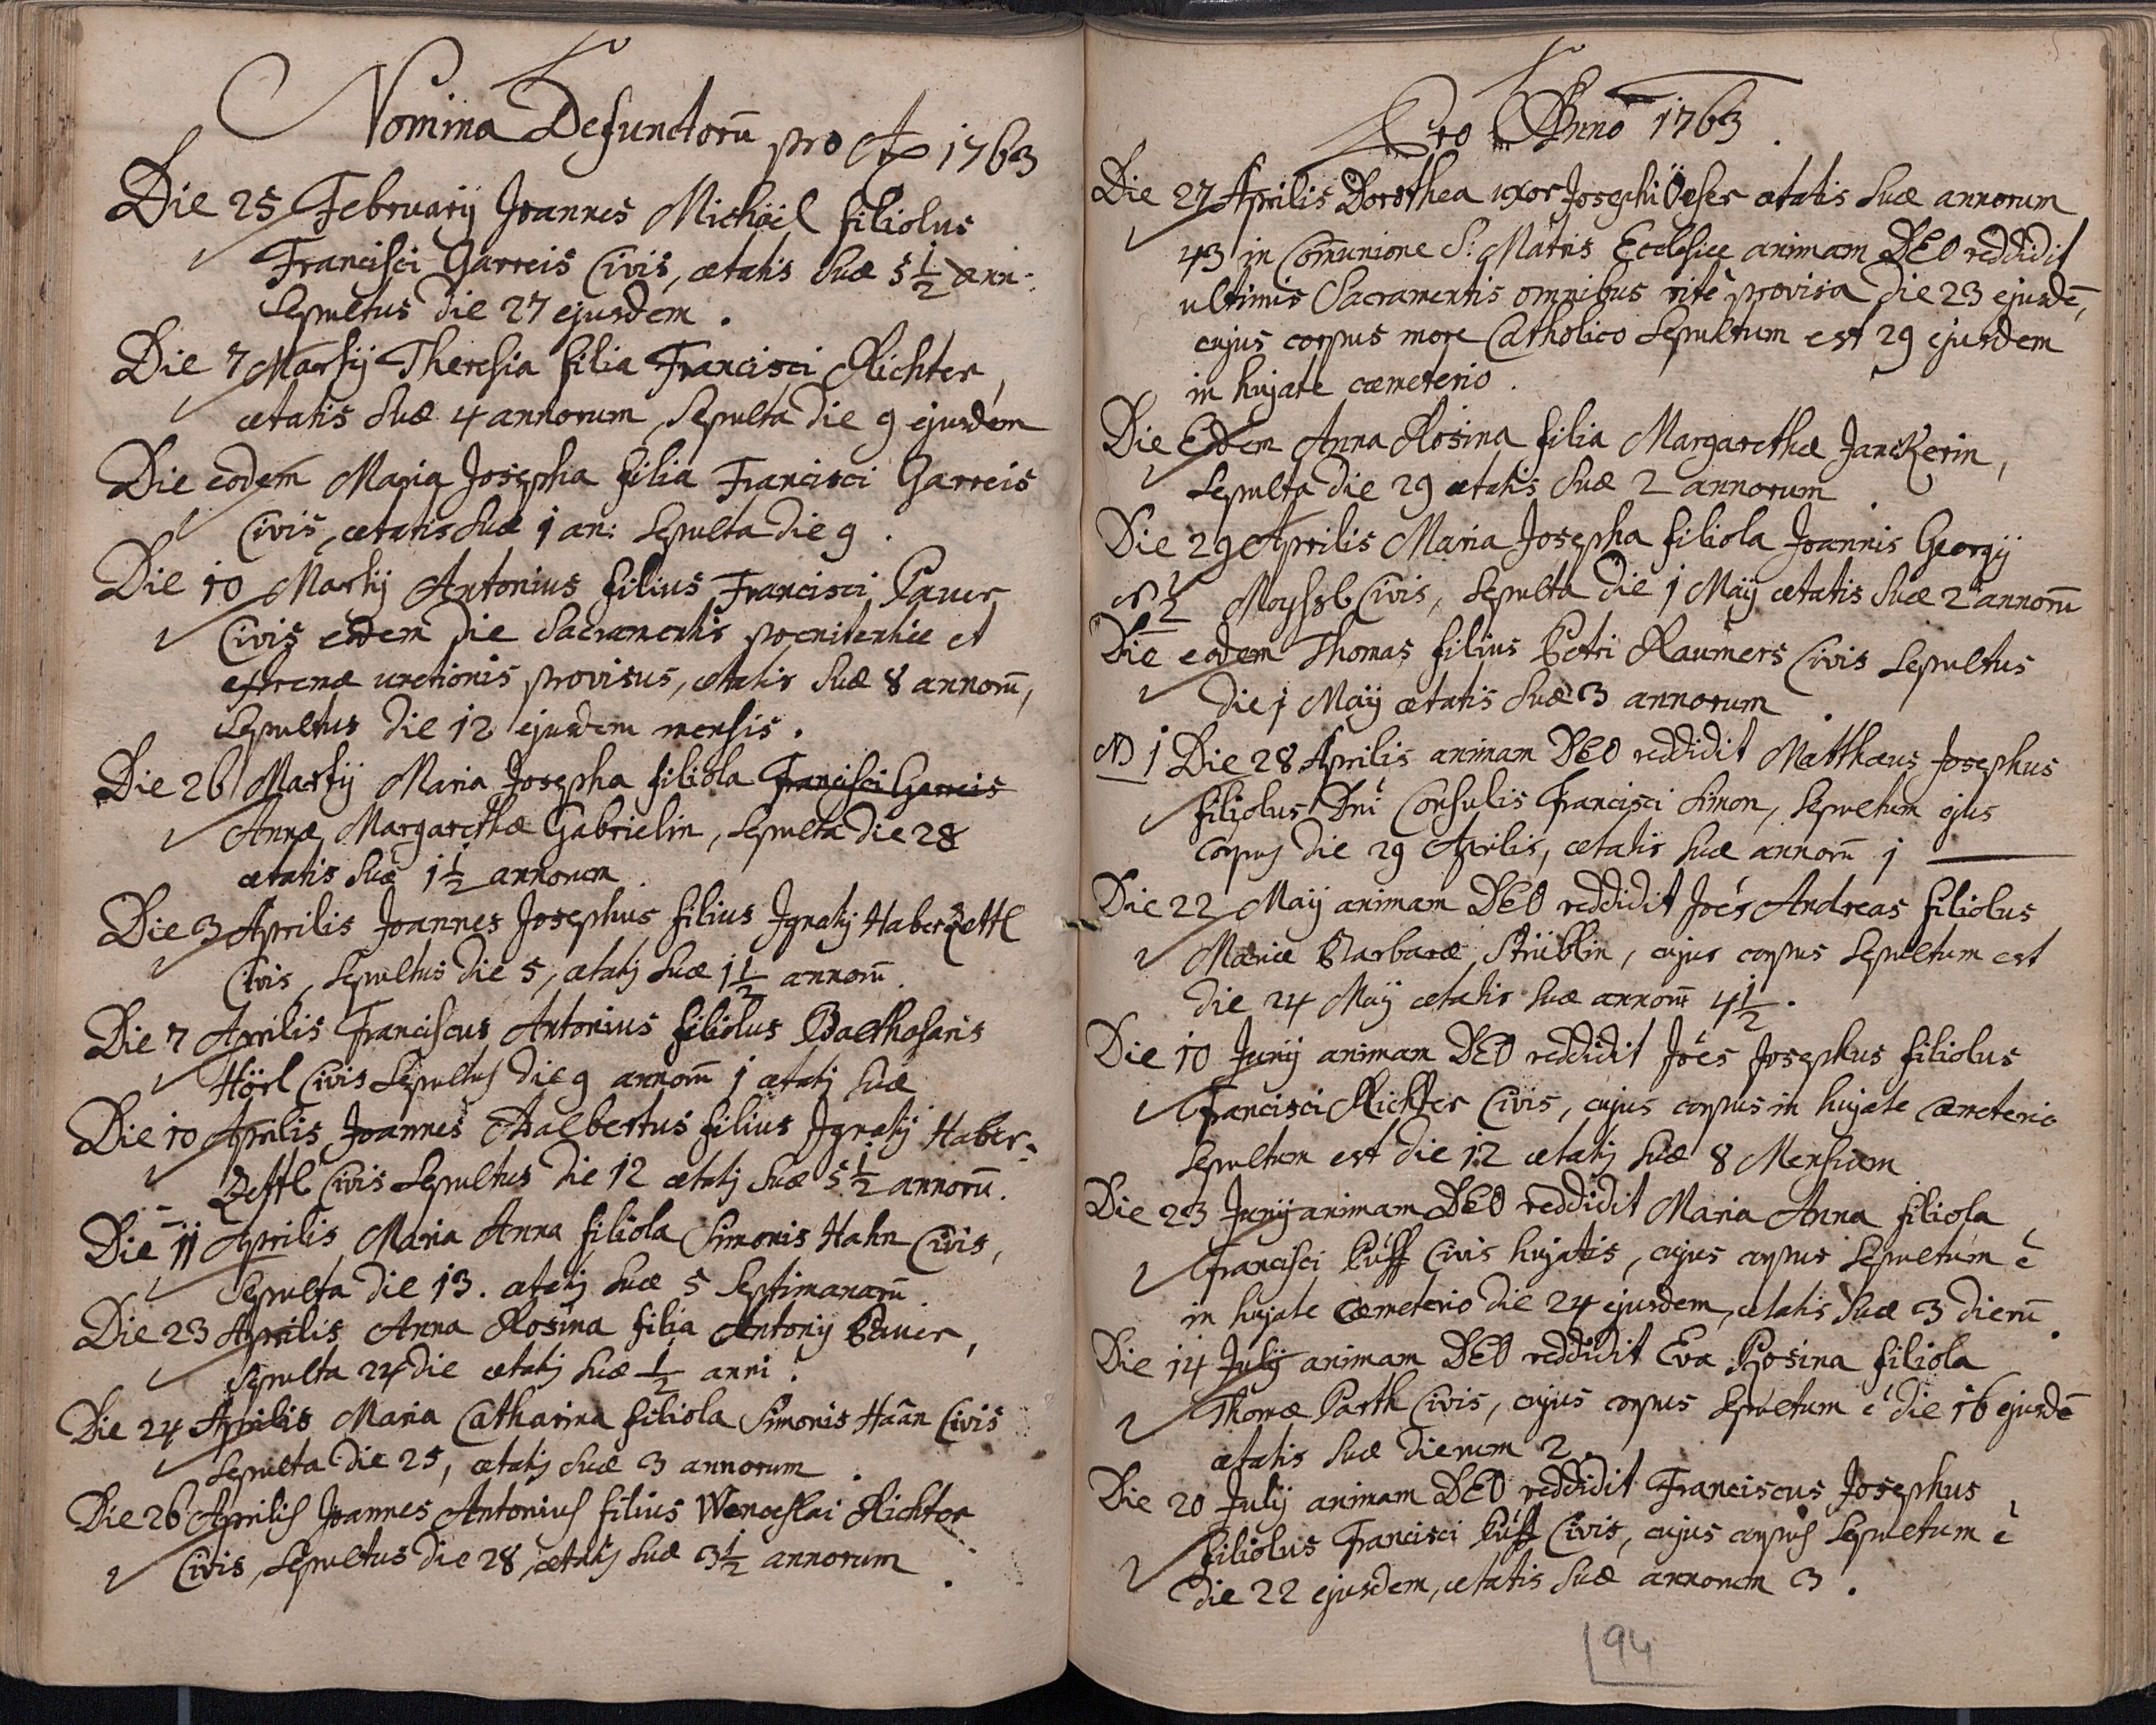 Nomina Defunctorū pro Ao 1763
Die 25 Februarij Joannes Michäel filiolus
Francisci Garreis Civis, ætatis suæ 5 1/2 ann:
Sepultus die 27 ejusdem.
Die 7 Martij Theresia filia Francisci Richter,
ætatis suæ 4 annorum, Sepulta die 9 ejusdem
Die eodem Maria Josepha filia Francisci Garreis
Civis, ætatis suæ 1 an: Sepulta die 9.
Die 10 Martij Antonius filius Francisci Pauer
Civis eodem die Sacramentis poenitentiæ et
extremæ unctionis provisus, ætatis suæ 8 annorū,
Sepultus die 12 ejusdem mensis.
Die 26 Martij Maria Josepha filiola Francisci Garreis
Annæ Margarethæ Gabrielin, Sepulta die 28
ætatis suæ 1 1/2 annorum.
Die 3 Aprilis Joannes Josephus filius Ignatij Haberzettl
Civis, Sepultus die 5, ætatis suæ 1 1/2 annorū.
Die 7 Aprilis Franciscus Antonius filiolus Balthasaris
Hörl Civis Sepultus die 9 annorū 1 ætatis suæ
Die 10 Aprilis Joannes Adalbertus filius Ignatij Haber-
Zettl Civis Sepultus die 12 ætatis suæ 5 1/2 annorū.
Die 11 Aprilis Maria Anna filiola Simonis Hahn Civis,
Sepulta die 13. ætatis suæ 5 Septimanarū.
Die 23 Aprilis Anna Rosina filia Antonij Pauer,
Sepulta 24 die ætatis suæ 1/2 anni.
Die 24 Aprilis Maria Catharina filiola Simonis Haan Civis
Sepulta die 25, ætatis suæ 3 annorum.
Die 26 Aprilis Joannes Antonius filius Wenceslai Richter
Civis, Sepultus die 28, ætatis suæ 3 1/2 annorum.
Pro Anno 1763.
Die 27 Aprilis Dorothea uxor Josephi ætatis suæ annorum
43 in Com̄unione S: Matris Ecclesiæ animam DEO reddidit
ultimis Sacramentis omnibus ritè provisa die 23 ejusdē,
cujus corpus more Catholico Sepultum est 29 ejusdem
in hujate cæmeterio.
Die Eodem Anna Rosina filia Margarethæ Janckerin,
Sepulta die 29 ætatis suæ 2 annorum.
Die 29 Aprilis Maria Josepha filiola Joannis Georgij
N 2 Moyssl Civis, Sepulta die 1 Maij ætatis suæ 2 annorū
Die eodem Thomas filius Petri Raumers Civis Sepultus
die 1 Maij ætatis suæ 3 annorum.
N 1 Die 28 Aprilis animam DEO reddidit Matthæus Josephus
filiolus Dn̄i Consulis Francisci Simon, Sepultum ejus
corpus die 29 Aprilis, ætatis suæ annorū 1
Die 22 Maij animam DEO reddidit Joēs Andreas filiolus
Mariæ Barbaræ Strüblin, cujus corpus Sepultum est
die 24 Maij ætatis suæ annorū 4 1/2.
Die 10 Junij animam DEO reddidit Joēs Josephus filiolus
Francisci Richter Civis, cujus corpus in hujate Cæmeterio
Sepultum est die 12 ætatis suæ 8 Mensium
Die 23 Junij animam DEO reddidit Maria Anna filiola
Francisci Püff Civis hujatis, cujus corpus Sepultum ē
in hujate Cæmeterio die 24 ejusdem, ætatis suæ 3 dierū.
Die 14 Julij animam DEO reddidit Eva Rosina filiola
Thomæ Parth Civis, cujus corpus Sepultum ē die 16 ejusdē
ætatis suæ dierum 2.
Die 20 Julij animam DEO reddidit Franciscus Josephus
filiolus Francisci Püff Civis, cujus corpus Sepultum ē
die 22 ejusdem, ætatis suæ annorum 3.
94